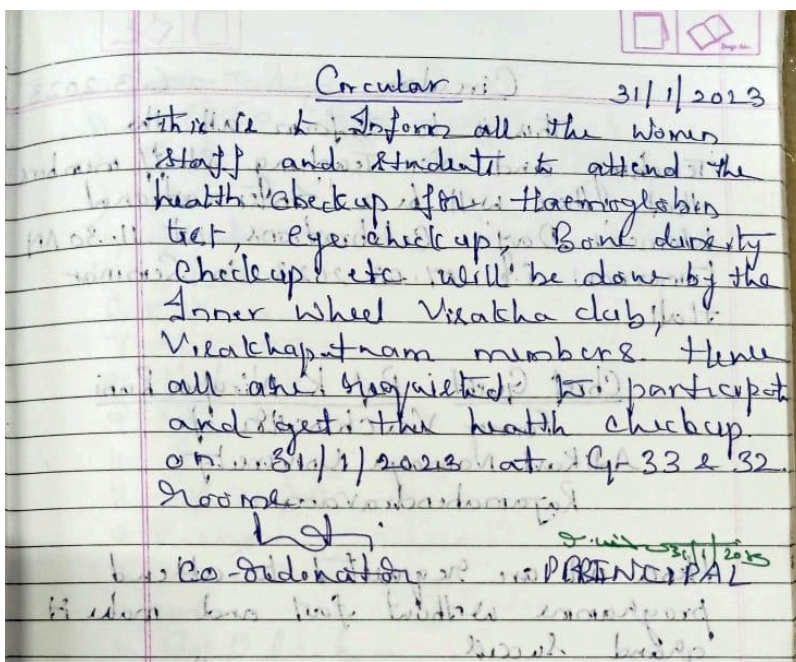 Circular 31/1/2023
this is to Inform all the women
staff and students to attend the
health checkup for Haemoglobin
test, eye check up, Bone density
Checkup etc. will be done by the
Inner Wheel Visakha club,
Visakhapatnam members. Hence
all are requested to participate
and get the health checkup
on 31/1/2023 at G-33 & 32
rooms.
31/1/2023
Co-ordinator PRINCIPAL